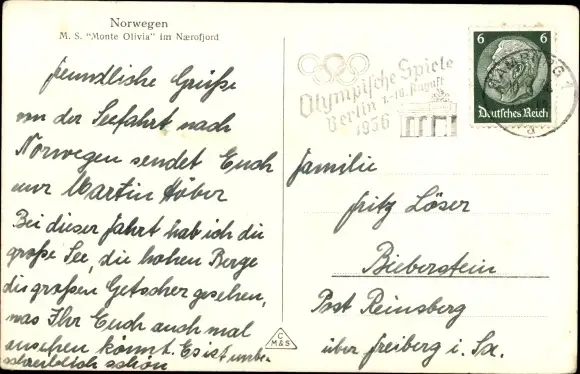 Norwegen
M. S. "Monte Olivia" im Nærofjord
freundliche Grüße
von der Seefahrt nach
Norwegen sendet Euch
nur Martin Höber
Bei dieser Fahrt hab ich die
große See, die hohen Berge
die großen Getscher gesehen,
was Ihr Euch auch mal
ansehen könnt. Es ist unbe-
schreiblich schön
C
M&S
Olympische Spiele
Berlin 1.-16. August
1936
6 6
Deutsches Reich
HAMBURG 1
Familie
Fritz Löser
Bieberstein
Post Reinsberg
über Freiberg i. Sa.